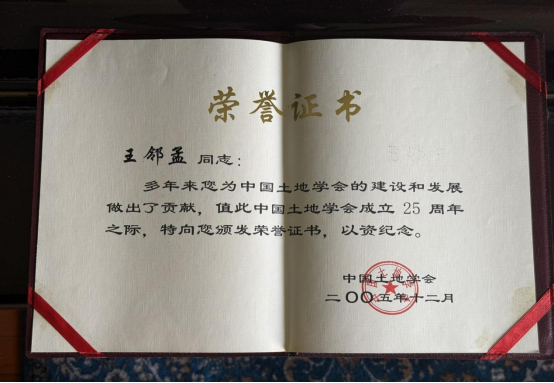 荣誉证书
王邻孟 同志：
多年来您为中国土地学会的建设和发展
做出了贡献，值此中国土地学会成立 25 周年
之际，特向您颁发荣誉证书，以资纪念。
中国土地学会
二〇〇五年十二月